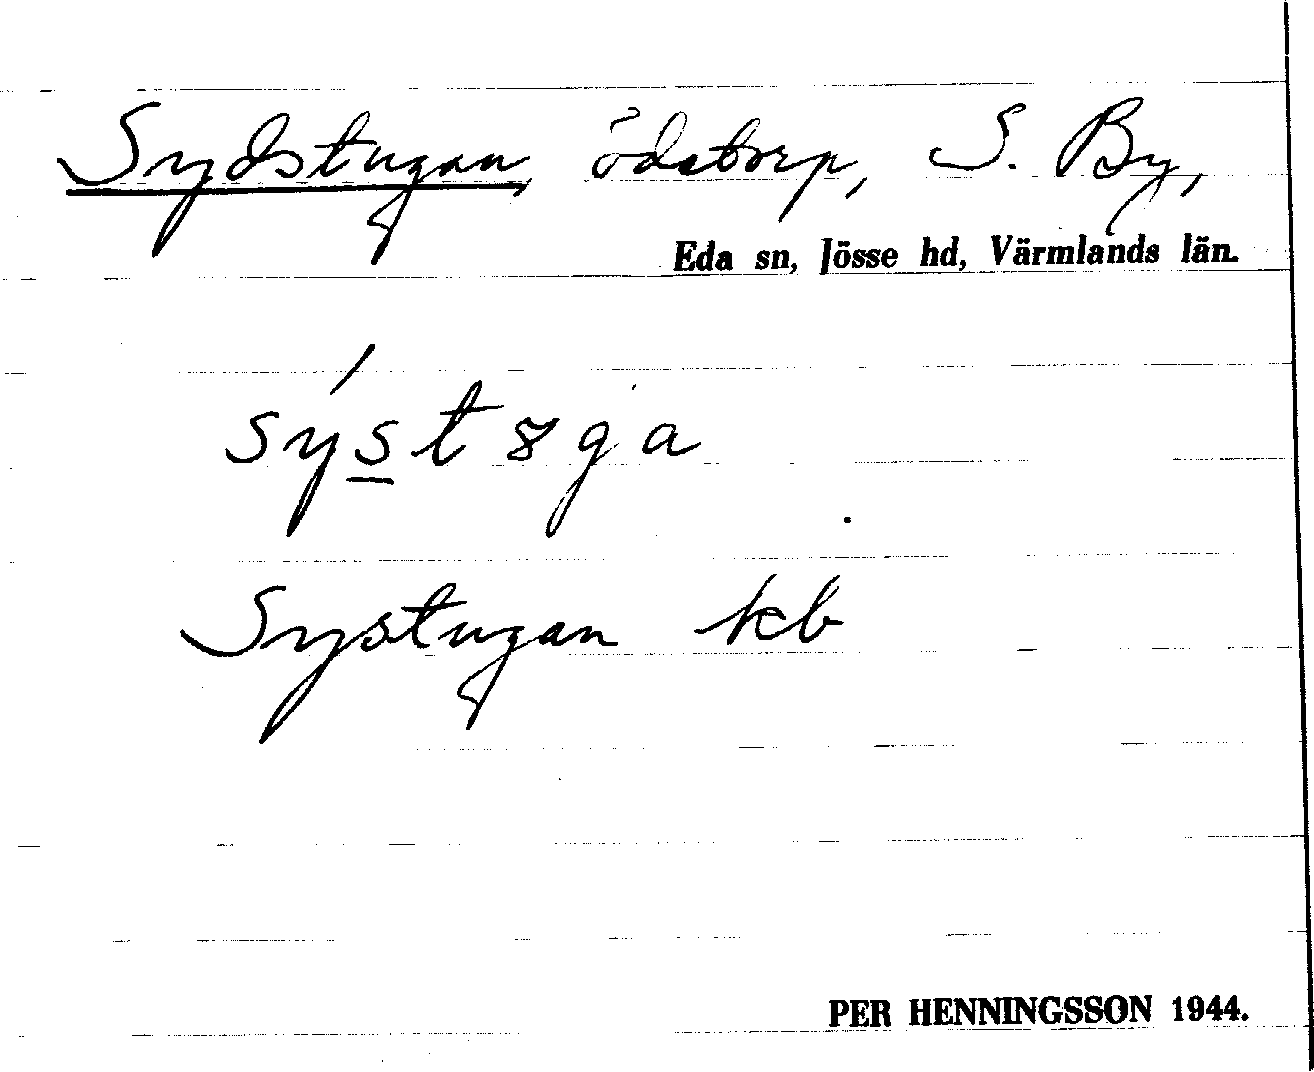 Sydstugan, ödetorp, S. By,
Eda sn, Jösse hd, Värmlands län.
sýs̲tꝏga
Systugan kb
PER HENNINGSSON 1944.